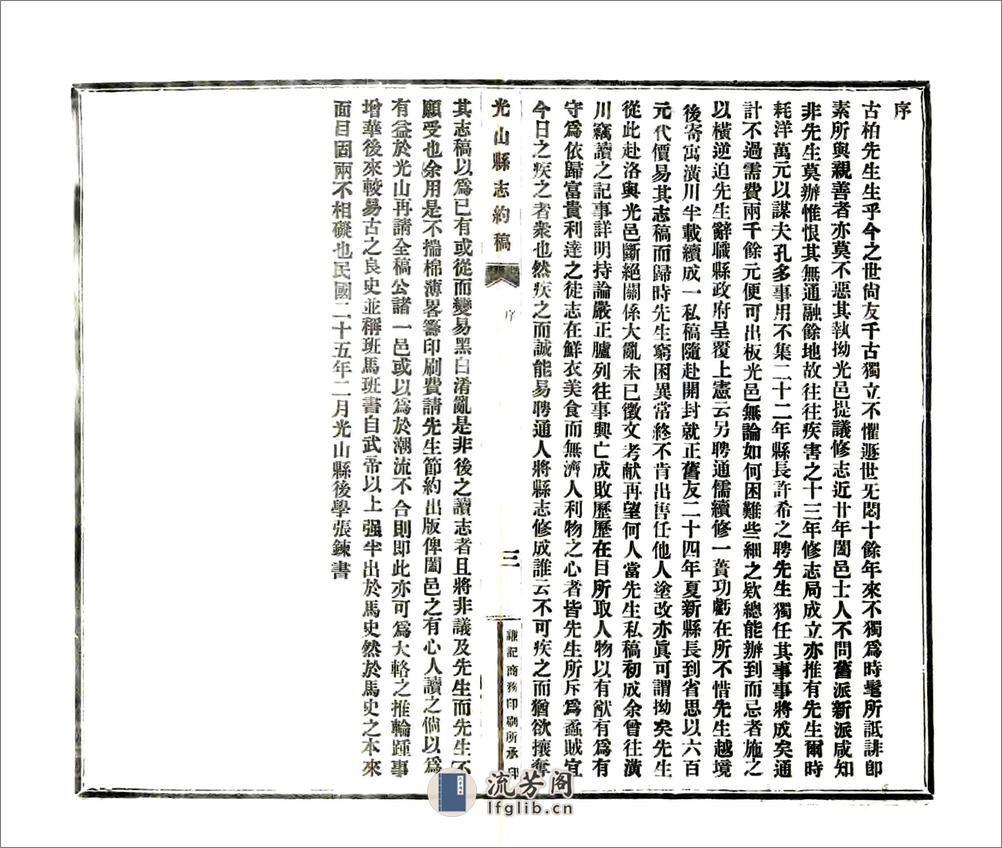 序
古柏先生生乎今之世尙友千古獨立不懼遯世无悶十餘年來不獨爲時髦所詆誹卽
素所與親善者亦莫不惡其執拗光邑提議修志近廿年闔邑士人不問舊派新派咸知
非先生莫辦惟恨其無通融餘地故往往疾害之十三年修志局成立亦推有先生爾時
耗洋萬元以謀夫孔多事用不集二十二年縣長許希之聘先生獨任其事事將成矣通
計不過需費兩千餘元便可出板光邑無論如何困難些細之欵總能辦到而忌者施之
以橫逆迫先生辭職縣政府呈覆上憲云另聘通儒續修一簣功虧在所不惜先生越境
後寄寓潢川半載續成一私稿隨赴開封就正舊友二十四年夏新縣長到省思以六百
元代價易其志稿而歸時先生窮困異常終不肯出售任他人塗改亦眞可謂拗矣先生
從此赴洛與光邑斷絕關係大亂未已徵文考獻再望何人當先生私稿初成余曾往潢
川竊讀之記事詳明持論嚴正臚列往事興亡成敗歷歷在目所取人物以有猷有爲有
守爲依歸富貴利達之徒志在鮮衣美食而無濟人利物之心者皆先生所斥爲蟊賊宜
今日之疾之者衆也然疾之而誠能易聘通人將縣志修成誰云不可疾之而猶欲攘奪
光山縣志約稿
序
三
謙記商務印刷所承印
其志稿以爲已有或從而變易黑白淆亂是非後之讀志者且將非議及先生而先生不
願受也余用是不揣棉薄畧籌印刷費請先生節約出版俾闔邑之有心人讀之倘以爲
有益於光山再請全稿公諸一邑或以爲於潮流不合則卽此亦可爲大輅之推輪踵事
增華後來較易古之良史並稱班馬班書自武帝以上强半出於馬史然於馬史之本來
面目固兩不相礙也民國二十五年二月光山縣後學張鍊書
流芳阁
lfglib.cn